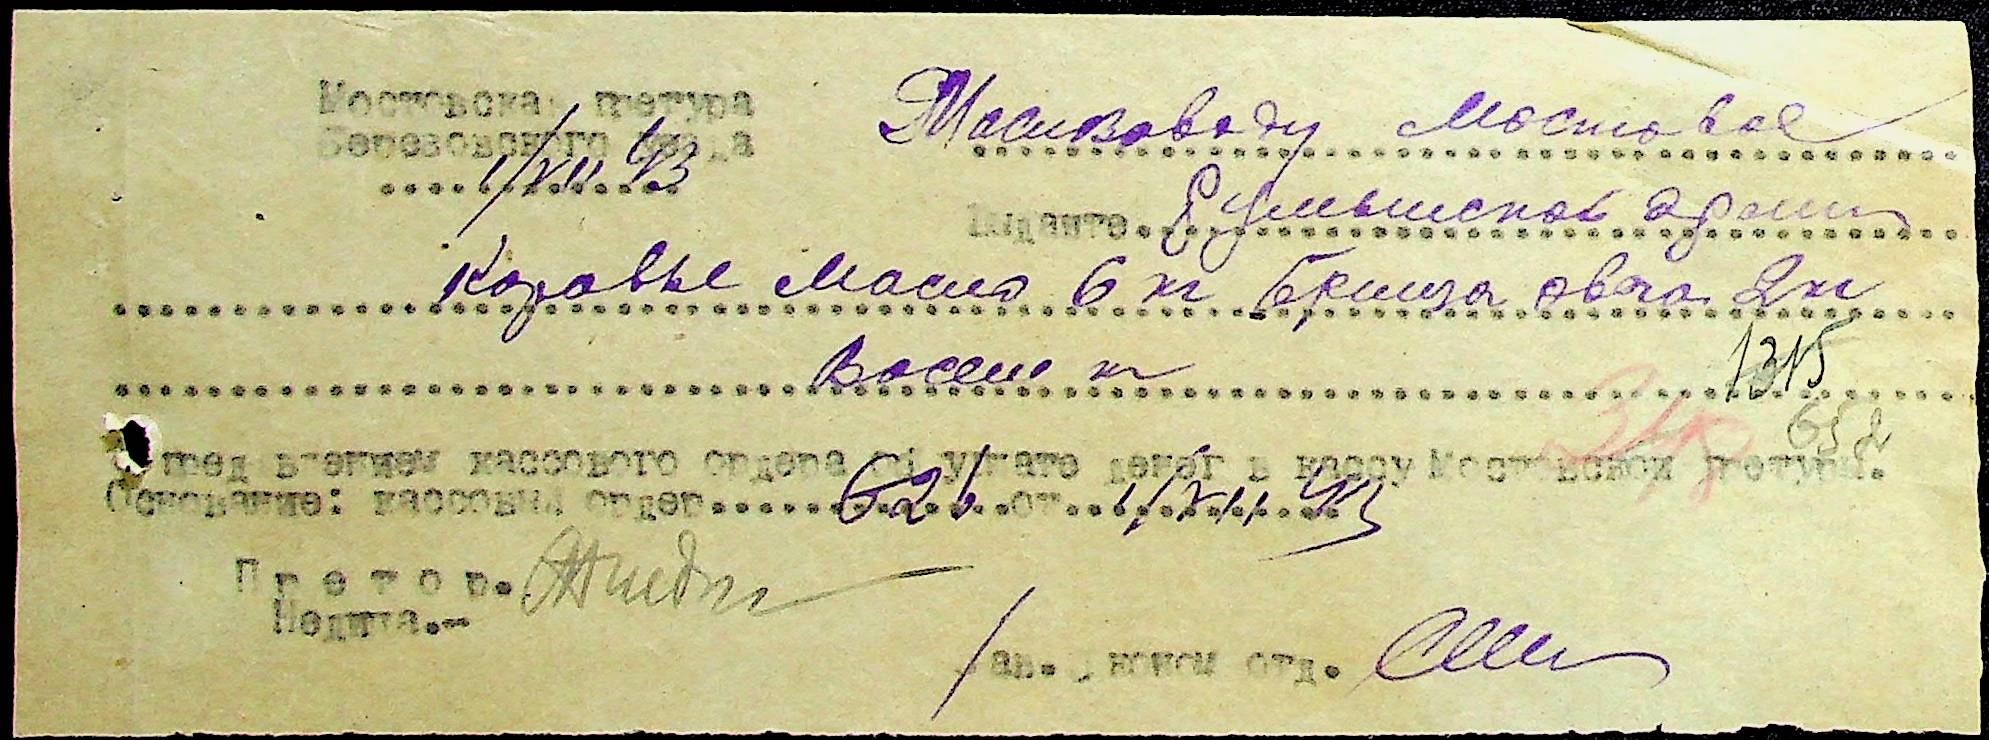 Мостовская претура
Березовского уезда
1/XII 43
Маслозаводу Мостовое
Выдайте. Румынской армии
Коровье масло 6 кг брынза овеча 2 кг
Восем кг
1315
652
пред'явлением кассового ордера об уплате денег в кассу Мостовской претуры.
Основание: кассовый ордер 621 от 1/XII 43
Претор.
Недита.-
Зав. отд.